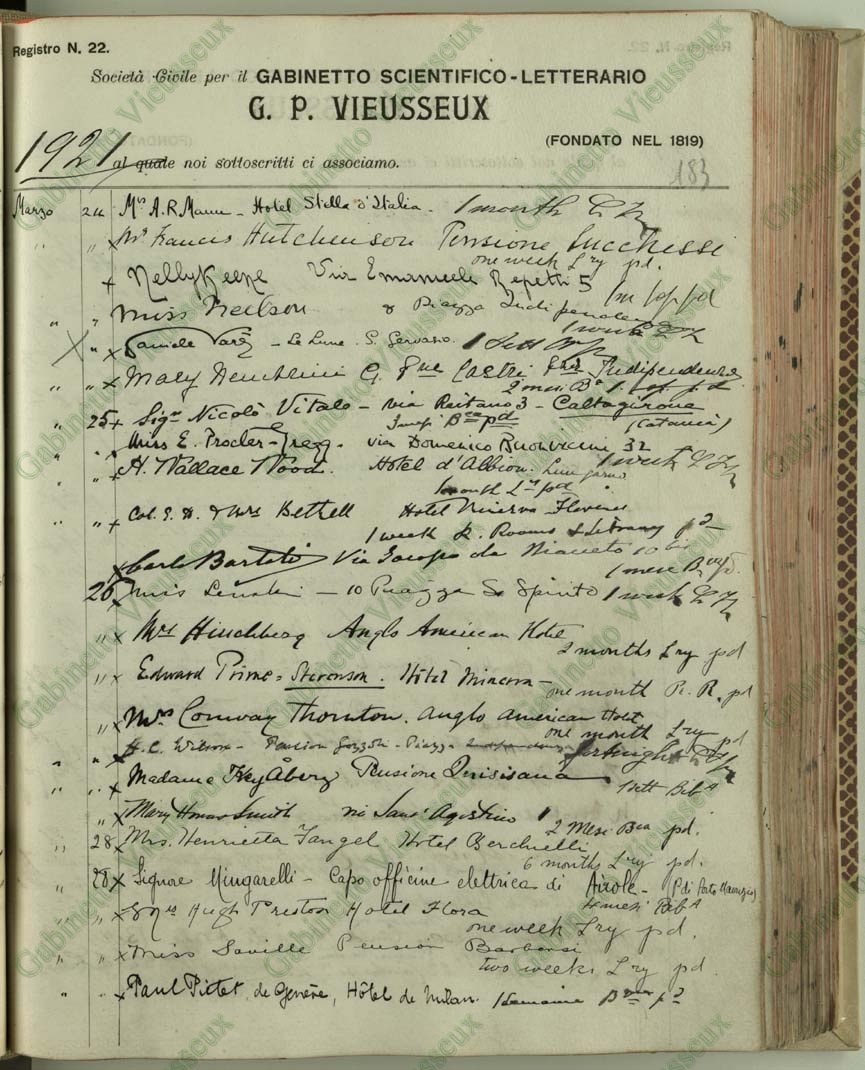 Registro N. 22.
Società Civile per il GABINETTO SCIENTIFICO-LETTERARIO
G. P. VIEUSSEUX
(FONDATO NEL 1819)
1921 al quale noi sottoscritti ci associamo.
183
Marzo 24 Mrs A. R. Mann - Hotel Stella d'Italia - 1 month
" " x Francis Hutchenson Pensione Lucchesi
one week Lry pd.
x Nelly Via Emanuele Repetti 5
" " Miss Neilson 8 Piazza Indipendenza
1 week
" x Daniele Varè - Le Lune - S. Gervasio. 1 Sett
" " x Mary G. Indipendenza
2 mesi
" 25 x Sigr Nicolò Vitale - via Raitano 3 - Caltagirone
(Catania)
" " Miss E. Procter-Gregg - via Domenico Buonvicini 32
1 week
" " x H. Wallace Wood. Hotel d'Albion. Lung'arno
1 month pd
" " x Col. & Mrs Bethell Hotel Minerva Florence
1 week R. Rooms & Library pd
x Carlo Via Jacopo da Diacceto 10 bis
1 mese
26 x Miss - 10 Piazza S. Spirito 1 week
" x Mrs Hinchberg Anglo American Hotel
2 months Lry pd
" x Edward Prime-Stevenson. Hôtel Minerva -
one month R. R. pd
" x Mrs Conway Thornton. Anglo American Hotel
one month Lry pd
" " x H. C. Wilson - Pension - Piazza Indipendenza fortnight
" " x Madame Key Åberg Pensione Quisisana
1 sett Biba
" x Mary Honor Smith Sant' Agostino 1
2 Mesi Bca pd.
" 28 x Mrs. Henrietta Tangel Hotel Berchielli
6 months Lry pd.
" 28 x Signore Mingarelli - Capo officine elettrica di Airole - (P. di Porto Maurizio)
mesi Biba
" " x Hugh Preston Hotel Flora
one week Lry pd.
" " x Miss Saville Pension Barbensi
two weeks Lry pd.
" " x Paul Pictet, de Genève, Hôtel de Milan. 1 semaine
Gabinetto Vieusseux